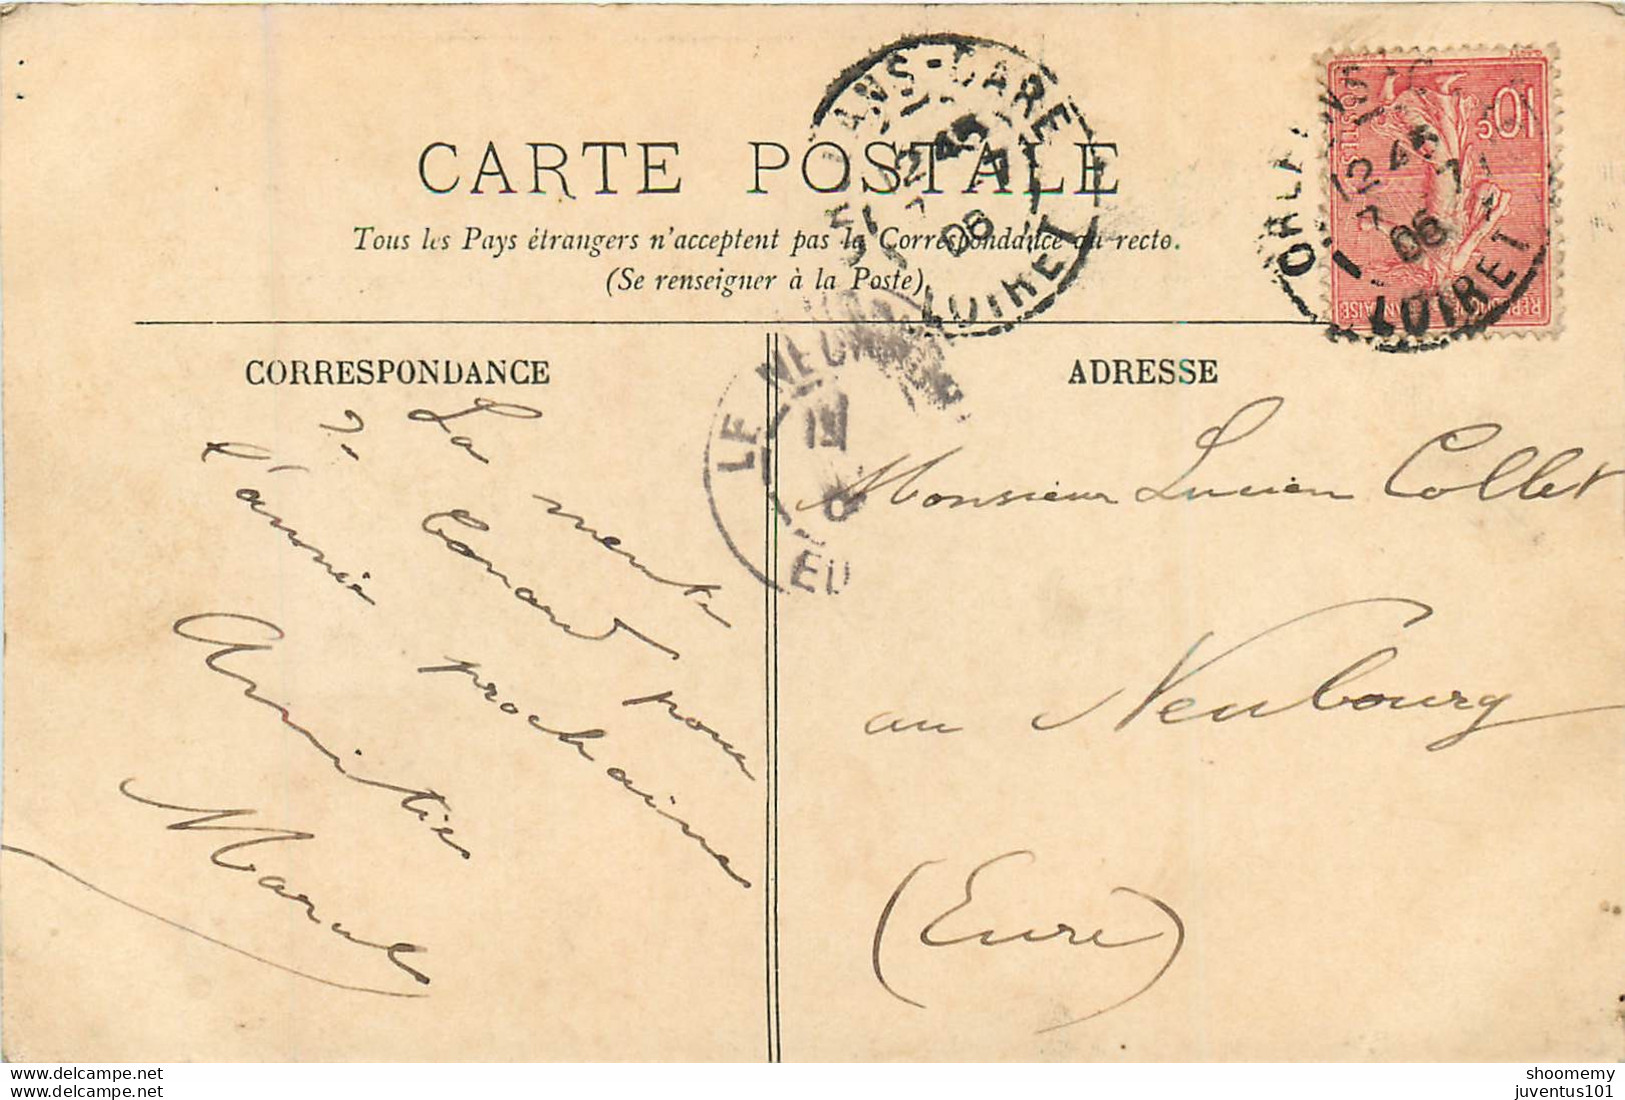 CARTE POSTALE
Tous les Pays étrangers n'acceptent pas la Correspondance au recto.
(Se renseigner à la Poste)
ORLEANS-GARE
12 45
7
06
LOIRET
ORLEANS
12 45
7
06
LOIRET
10c
POSTES
REPUBLIQUE FRANÇAISE
CORRESPONDANCE
ADRESSE
LE NEUBOURG
EU
La meute
de Conard pour
l'année prochaine
Amitiés
Marcel
Monsieur Lucien Collet
au Neubourg
(Eure)
delcampe.net
delcampe.net
shoomemy
juventus101